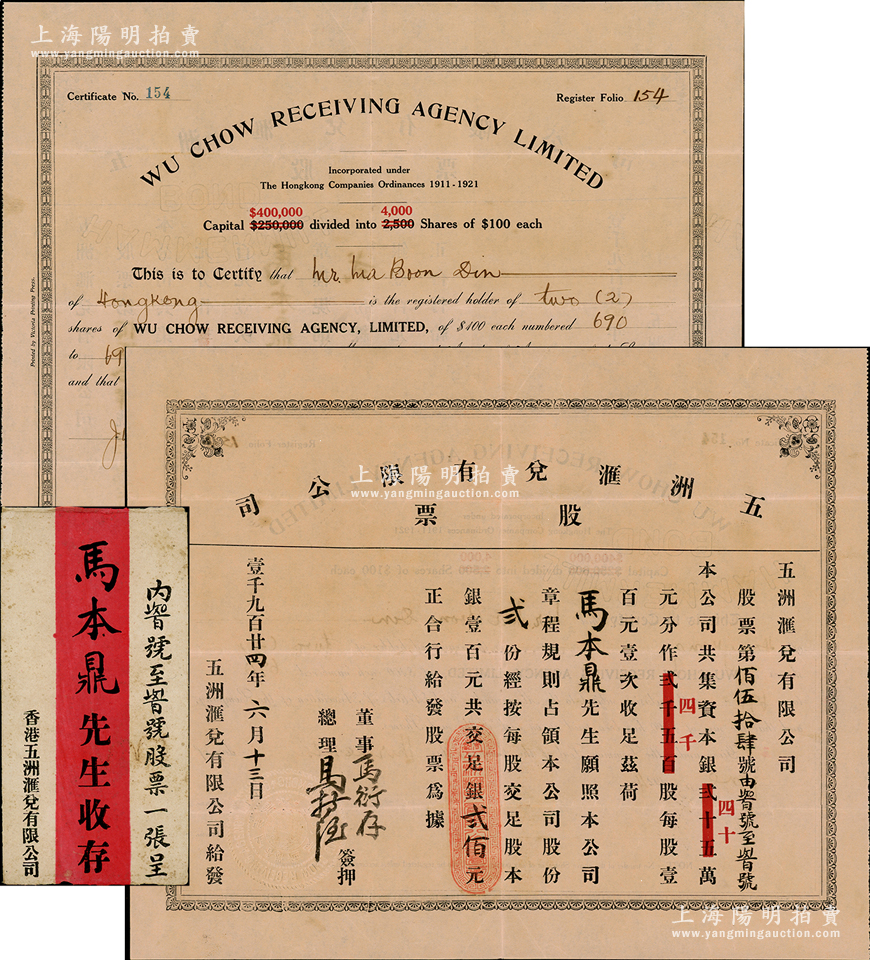 上海陽明拍賣
www.yangmingauction.com
Certificate No. 154
Register Folio 154
WU CHOW RECEIVING AGENCY LIMITED
Incorporated under
The Hongkong Companies Ordinances 1911-1921
$400,000 4,000
Capital $250,000 divided into 2,500 Shares of $100 each
This is to Certify that Mr. Ma Boon Din
of Hongkong is the registered holder of two (2)
shares of WU CHOW RECEIVING AGENCY, LIMITED, of $100 each numbered 690
to 69
and that
Printed by Victoria Printing Press.
上海陽明拍賣
www.yangmingauction.com
五洲滙兌有限公司
股票
五洲滙兌有限公司
股票第佰伍拾肆號由
號至
號
本公司共集資本銀弍十五萬
四十
元分作弍千五百股每股壹
四千
百元壹次收足茲荷
馬本鼎先生願照本公司
章程規則占領本公司股份
弍份經按每股交足股本
銀壹百元共交足銀弍佰元
正合行給發股票為據
董事馬衍存
總理
簽押
壹千九百廿四年六月十三日
五洲滙兌有限公司給發
內
號至
號股票一張呈
馬本鼎先生收存
香港五洲滙兌有限公司
上海陽明拍賣
www.yangmingauction.com